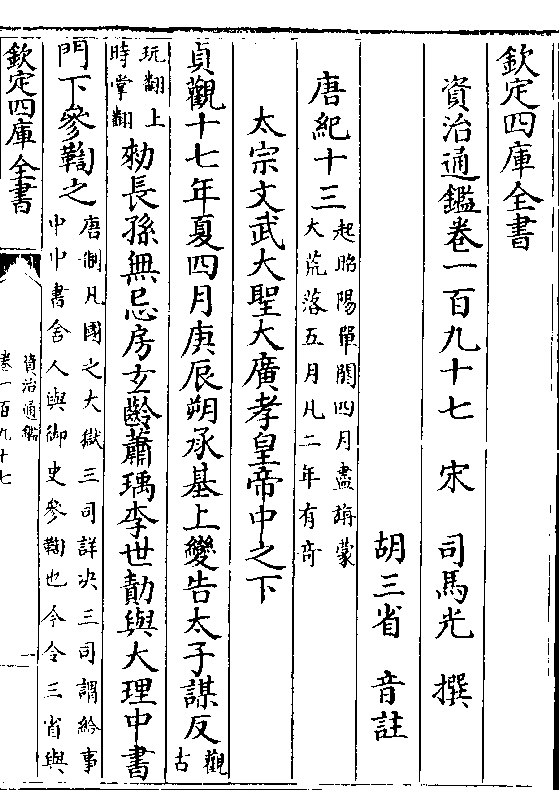 欽定四庫全書
資治通鑑卷一百九十七　宋　司馬光　撰
胡三省　音註
唐紀十三
起昭陽單閼四月盡旃蒙
大荒落五月凡二年有奇
太宗文武大聖大廣孝皇帝中之下
貞觀十七年夏四月庚辰朔承基上變告太子謀反
觀古
玩翻上
時掌翻
勑長孫無忌房玄齡蕭瑀李世勣與大理中書
門下參鞫之
唐制凡國之大獄三司詳決三司謂給事
中中書舍人與御史參鞫也今令三省與
欽定四庫全書
資治通鑑
卷一百九十七
一